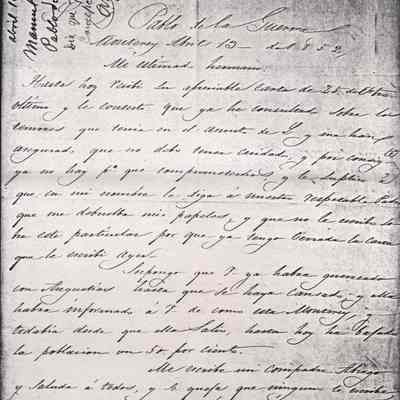 abril 1
Manuel
Pablo de
Pablo de la Guerra
Monterey Abril 13 - de 1852,
Me estimado hermano.
Hasta hoy recibí la apreciable carta de 25 del
último y le contesto que ya he consultado sobre los
temores que tenía en el asunto de y me han
asegurado, que no debe tener cuidado, y por
ya no hay pa que comprometerlos y le suplico
que en mi nombre le diga á nuestro respetable
que me debuelba mis papeles, y que no le escribo
en este particular por que ya tengo cerrada la carta
que le escribí ayer.
Supongo que V. ya habra
con Angustias hasta que se haya cansado, y ella
habra informado á V. de como esta Monterey, y
todabia desde que ella Salio hasta hoy ha bajado
la poblacion un 50 por ciento.
Me escribe mi compadre
y Saluda á todos, y se queja que ninguno le escribe